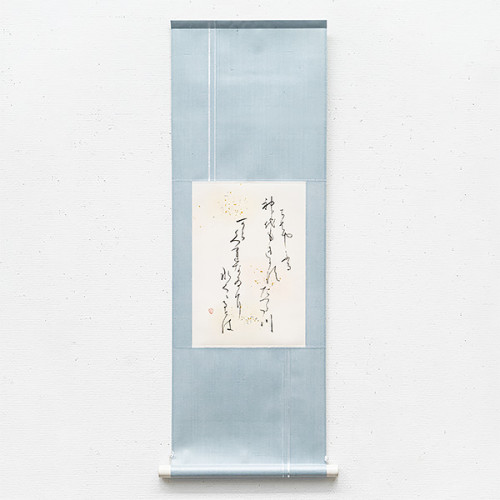 ちはやふる
神代もきかすたつた川
からくれなゐに
水くくるとは